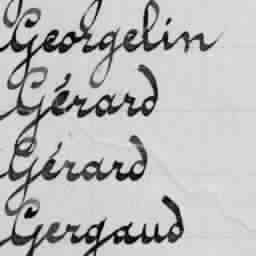 Georgelin
Gérard
Gérard
Gergaud